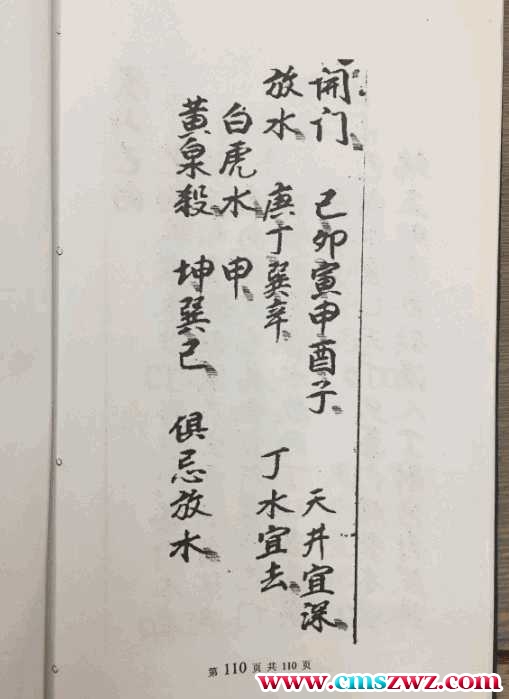 开门　己卯寅申酉子　天井宜深
放水　庚丁巽辛　丁水宜去
白虎水　申
黄泉殺　坤巽己　俱忌放水
第 110 页 共 110 页
www.cmszwz.com